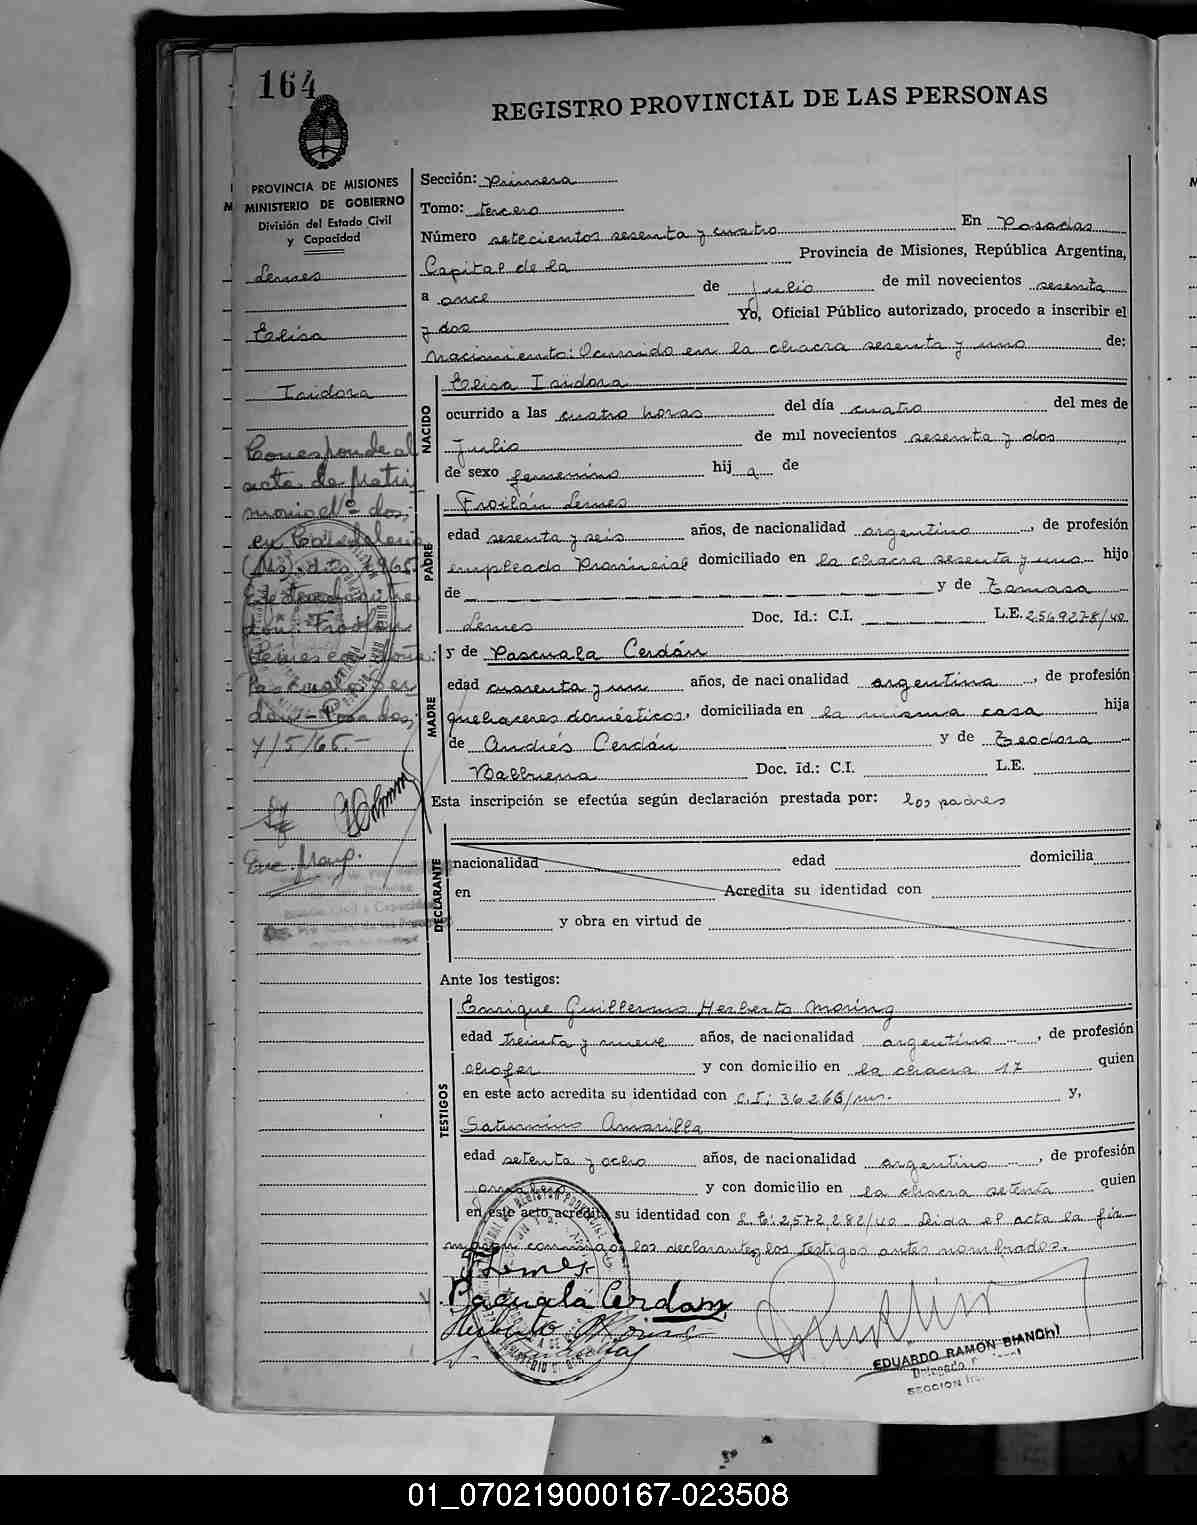 164
REGISTRO PROVINCIAL DE LAS PERSONAS
PROVINCIA DE MISIONES
MINISTERIO DE GOBIERNO
División del Estado Civil
y Capacidad
Lemes
Elisa
Isidora
Corresponde al
acta de Matri
monio Nº dos,
en Candelaria
(Ms). año 1965.
don Froilan
Lemes con doña
Pascuala Cer
dan - Posadas,
4/5/65.-
Enc. Marg.
Sección: Primera
Tomo: tercero
Número setecientos sesenta y cuatro En Posadas
Capital de la Provincia de Misiones, República Argentina,
a once de julio de mil novecientos sesenta
y dos Yo, Oficial Público autorizado, procedo a inscribir el
nacimiento: Ocurrido en la chacra sesenta y uno de:
NACIDO
Elisa Isidora
ocurrido a las cuatro horas del día cuatro del mes de
julio de mil novecientos sesenta y dos
de sexo femenino hij a de
PADRE
Froilán Lemes
edad sesenta y seis años, de nacionalidad argentino, de profesión
empleado Provincial domiciliado en la chacra sesenta y uno hijo
de y de Tomasa
Lemes Doc. Id.: C.I. L.E. 2569278/40
MADRE
y de Pascuala Cerdán
edad cuarenta y un años, de nacionalidad argentina, de profesión
quehaceres domésticos, domiciliada en la misma casa hija
de Andrés Cerdán y de Teodora
Balbuena Doc. Id.: C.I. L.E.
Esta inscripción se efectúa según declaración prestada por: los padres
DECLARANTE
nacionalidad edad domicilia
en Acredita su identidad con
y obra en virtud de
Ante los testigos:
TESTIGOS
Enrique Guillermo Herberto Moring
edad treinta y nueve años, de nacionalidad argentino, de profesión
chofer y con domicilio en la chacra 17 quien
en este acto acredita su identidad con C.I: 36266/ms. y,
Saturnino Amarilla
edad setenta y ocho años, de nacionalidad argentino, de profesión
y con domicilio en la chacra setenta quien
en este acto acredita su identidad con L.E: 2572282/40 Leida el acta la fir
maron conmigo los declarantes y los testigos antes nombrados.
FLemes
Pacuala Cerdan
Herberto Moring
EDUARDO RAMON BIANCHI
Delegado
SECCION
01_070219000167-023508